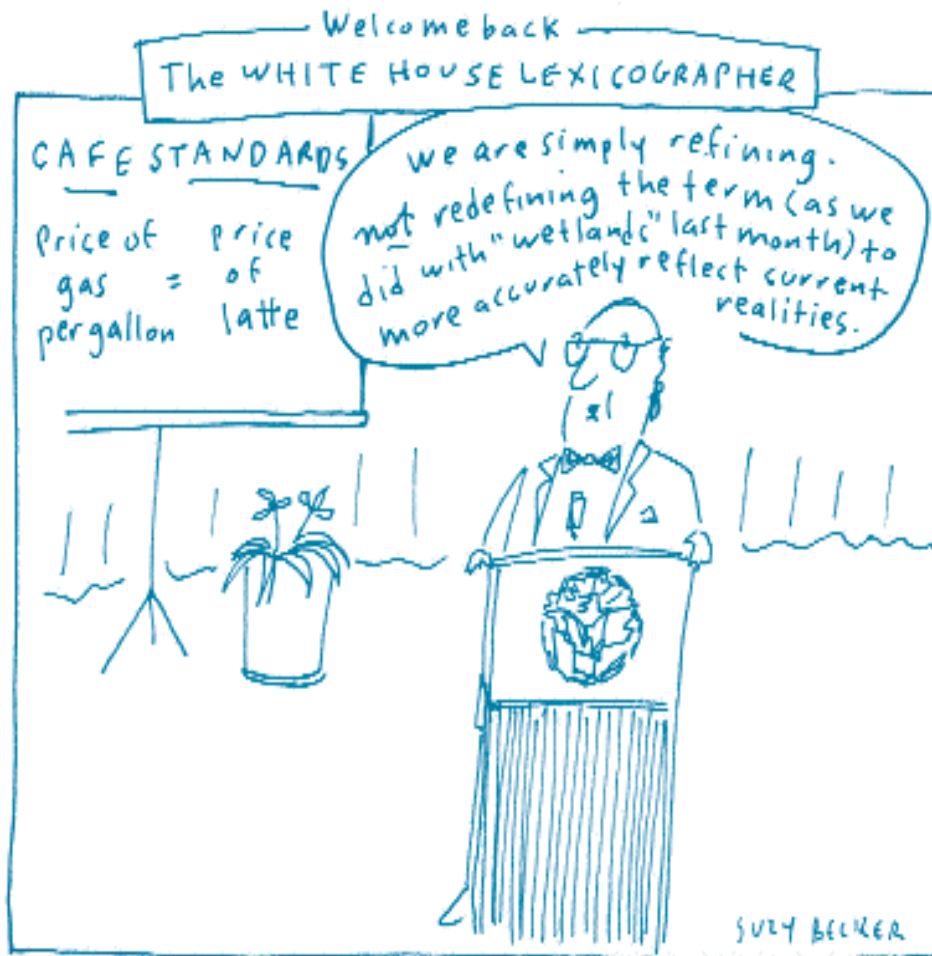 Welcome back
The WHITE HOUSE LEXICOGRAPHER
CAFE STANDARDS
price of price
gas = of
per gallon latte
we are simply refining.
not redefining the term (as we
did with "wetlands" last month) to
more accurately reflect current
realities.
SUZY BECKER